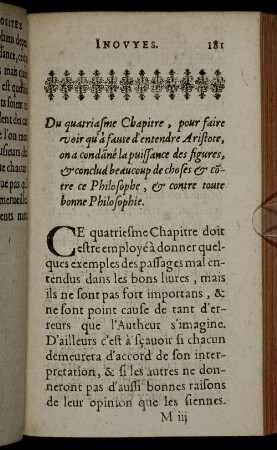 INOVYES. 181
Du quatriasme Chapitre, pour faire
voir qu'à faute d'entendre Aristote,
on a condãné la puissance des figures,
& conclud beaucoup de choses & cõ-
tre ce Philosophe, & contre toute
bonne Philosophie.
CE quatriesme Chapitre doit
estre employé à donner quel-
ques exemples des passages mal en-
tendus dans les bons liures, mais
ils ne sont pas fort importans, &
ne sont point cause de tant d'er-
reurs que l'Autheur s'imagine.
D'ailleurs c'est à sçauoir si chacun
demeurera d'accord de son inter-
pretation, & si les autres ne don-
neront pas d'aussi bonnes raisons
de leur opinion que les siennes.
M iij